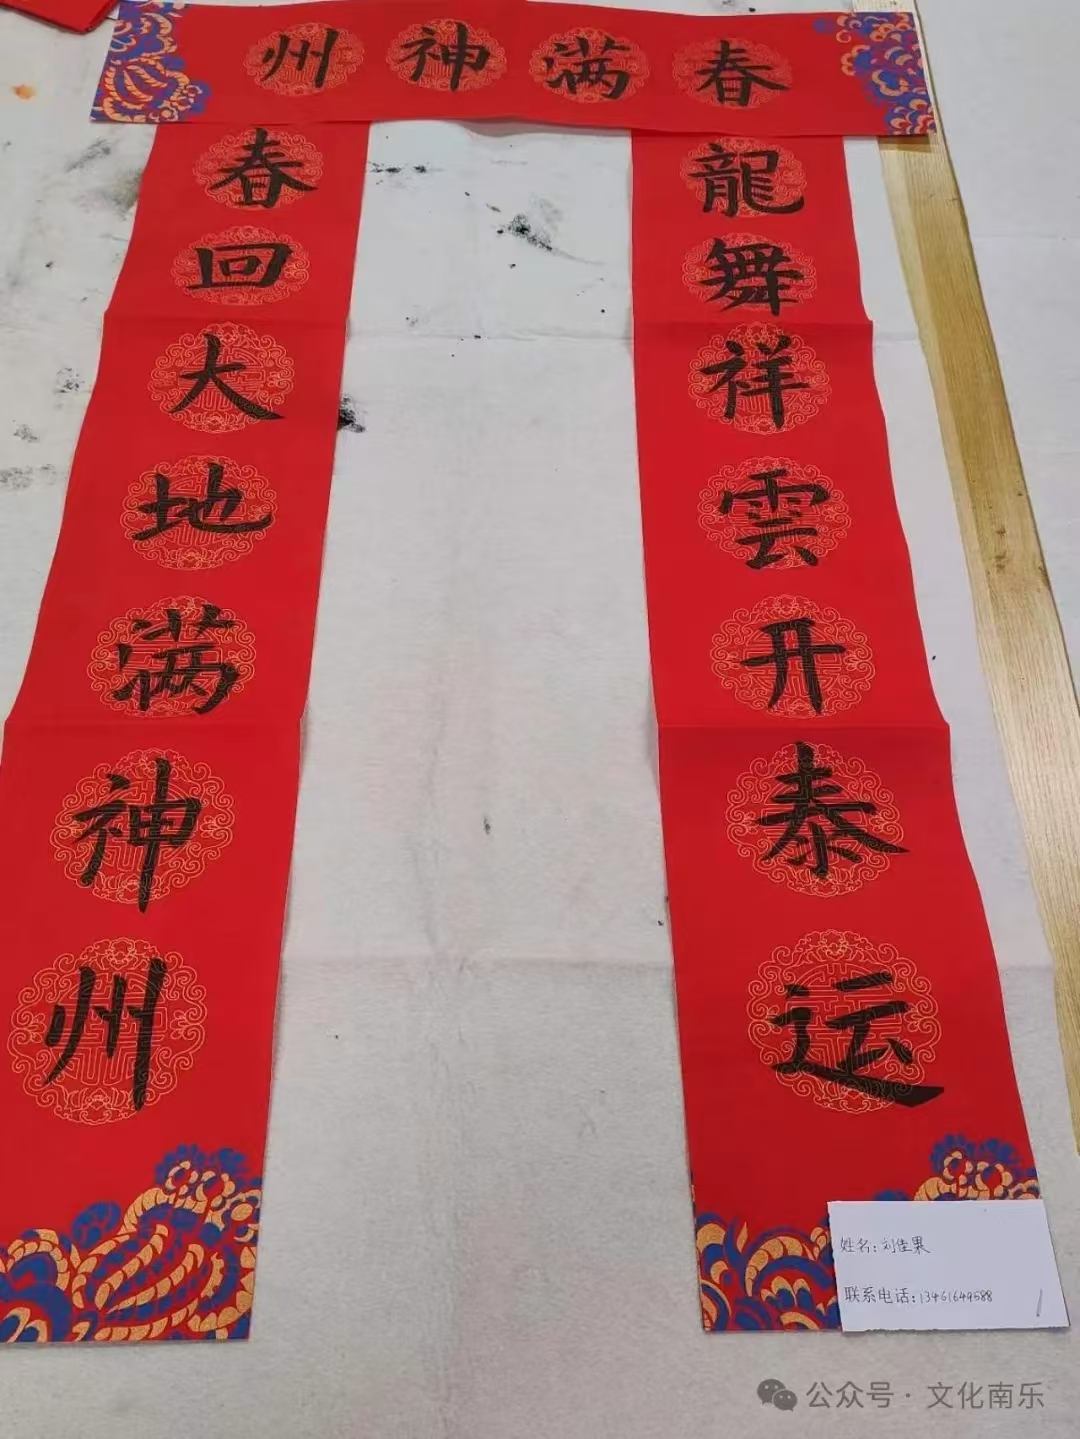 春满神州
龍舞祥雲开泰运
春回大地满神州
姓名:刘佳果
联系电话:13461649588
1
公众号·文化南乐